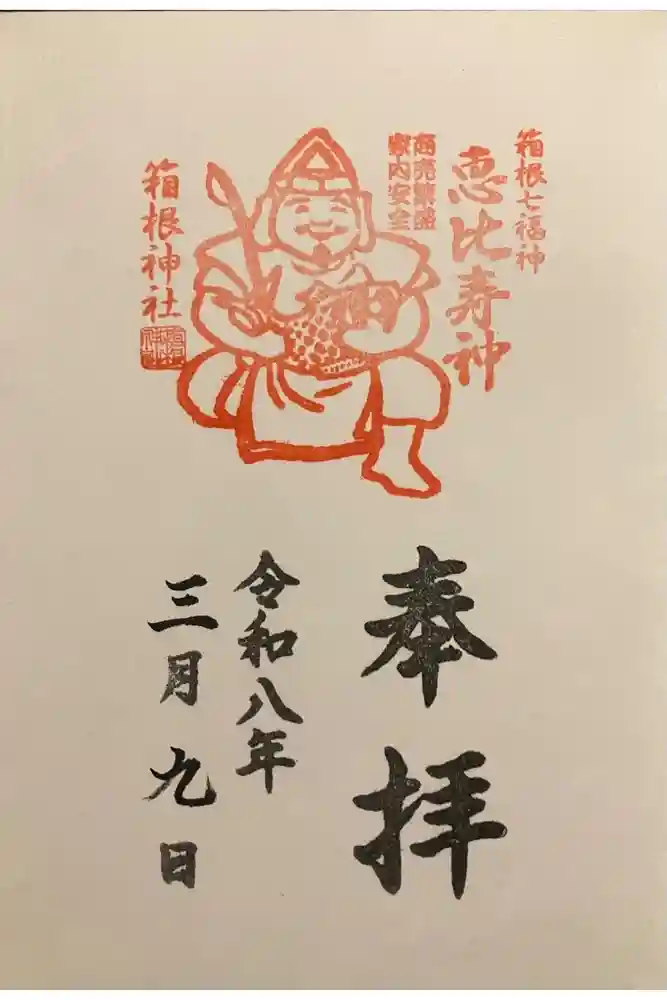 箱根七福神
恵比寿神
商売繁盛
家内安全
箱根神社
奉拝
令和八年
三月九日